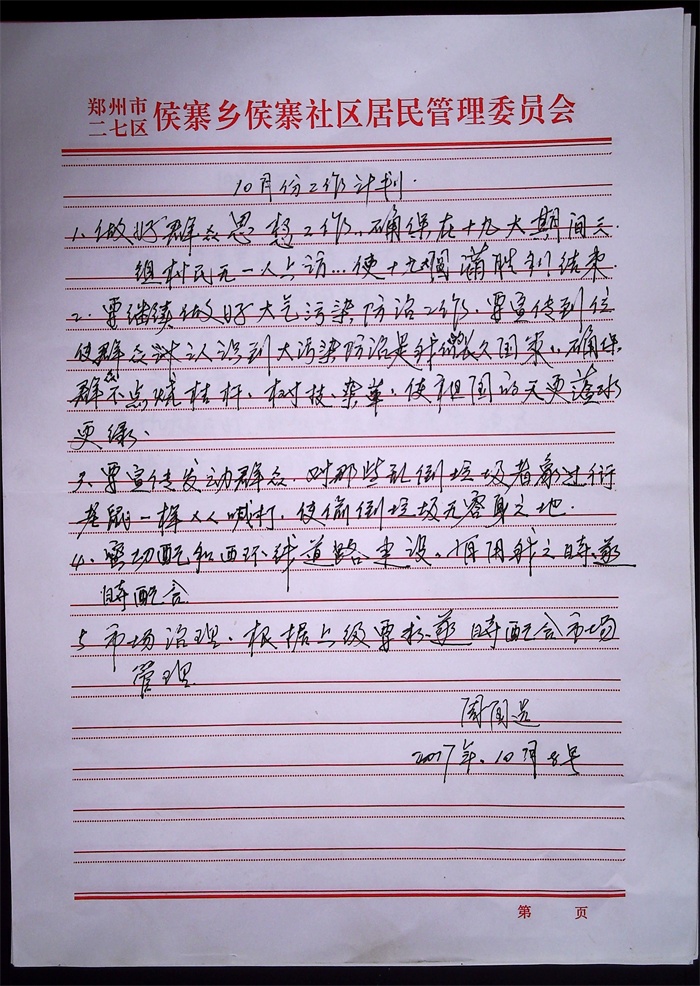 郑州市
二七区 侯寨乡侯寨社区居民管理委员会
10月份工作计划.
1、做好群众思想工作、确保在十九大期间三
组村民无一人上访…使十九大圆满胜利结束.
2、要继续做好大气污染防治工作、要宣传到位
使群众认识到大污染防治是我们长久国策、确保
群众不点烧桔杆、树枝、杂草、使祖国的天更蓝水
更绿、
3、要宣传发动群众、对那些乱倒垃圾者象过街
老鼠一样人人喊打、使偷倒垃圾无容身之地.
4、密切配和西环线道路建设、有用我之时、逐
时配合
5、市场治理、根据上级要求、逐时配合市场
管理
2017年、10月8号
第 页